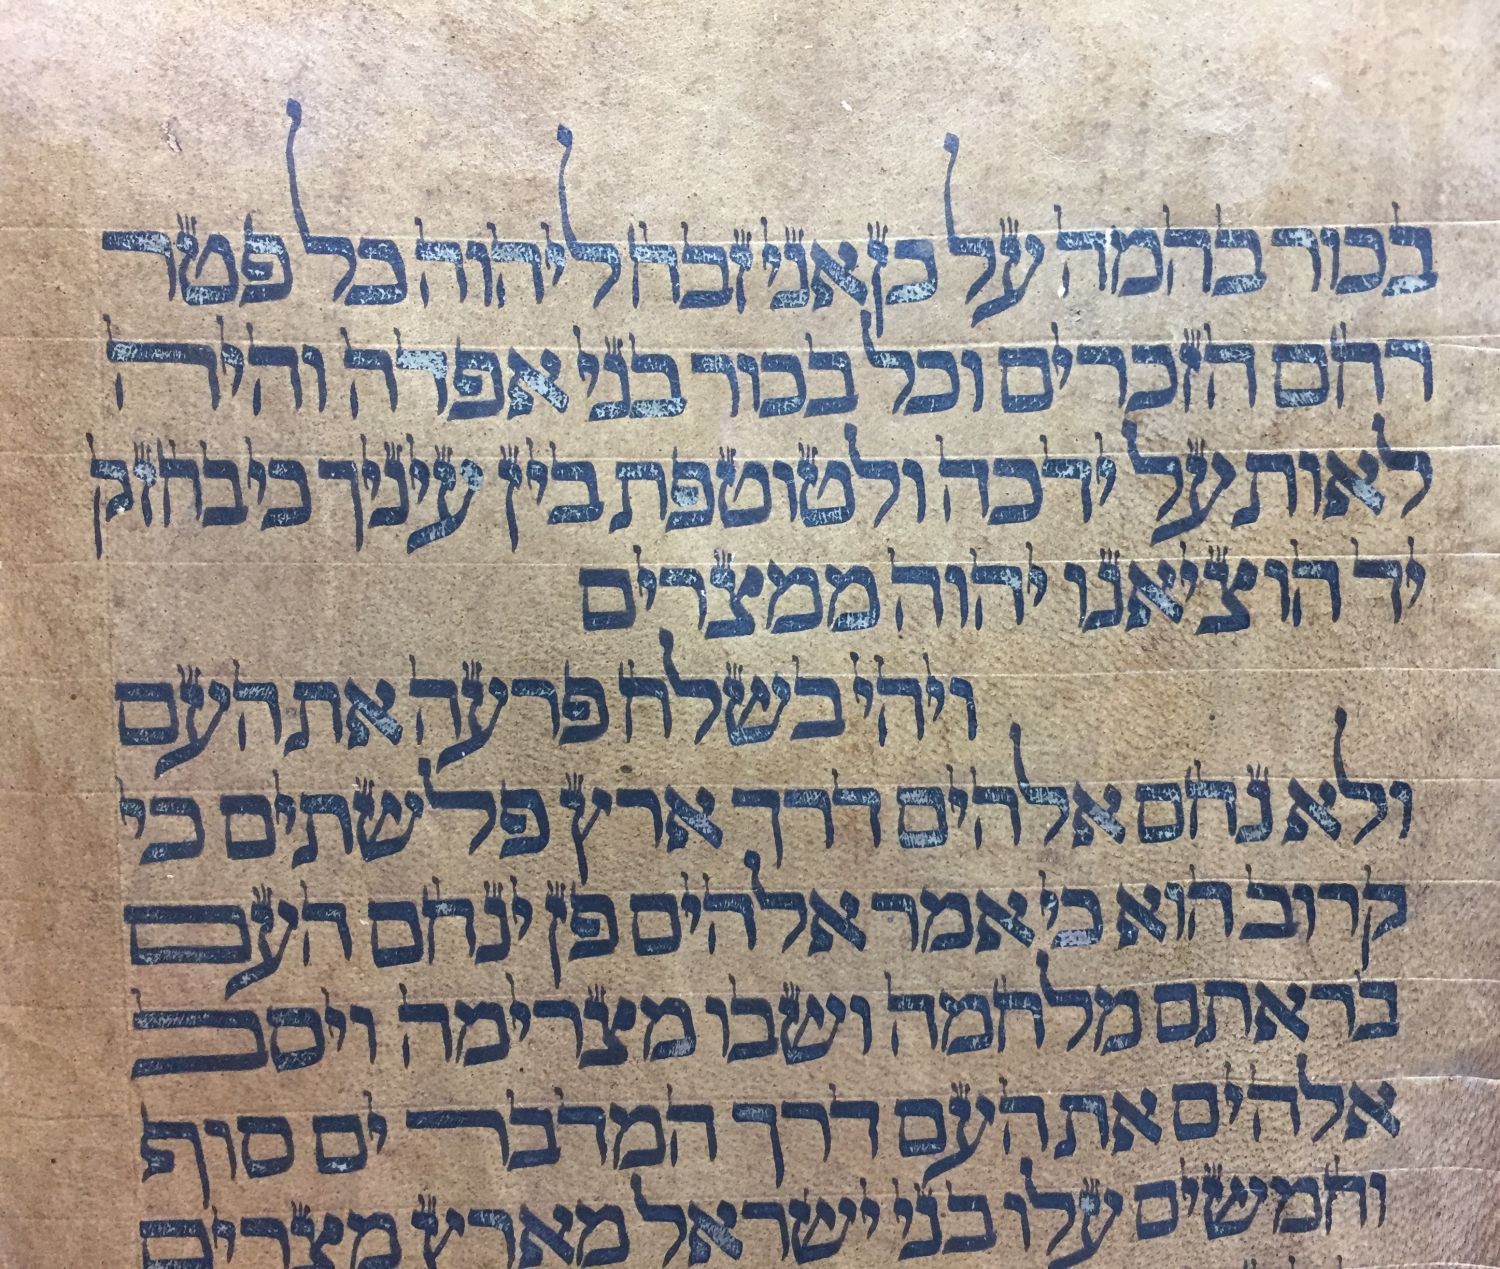 בכור בהמה על כן אני זבח ליהוה כל פטר
רחם הזכרים וכל בכור בני אפדה והיה
לאות על ידכה ולטוטפת בין עיניך כי בחזק
יד הוציאנו יהוה ממצרים
ויהי בשלח פרעה את העם
ולא נחם אלהים דרך ארץ פלשתים כי
קרוב הוא כי אמר אלהים פן ינחם העם
בראתם מלחמה ושבו מצרימה ויסב
אלהים את העם דרך המדבר ים סוף
וחמשים עלו בני ישראל מארץ מצרים